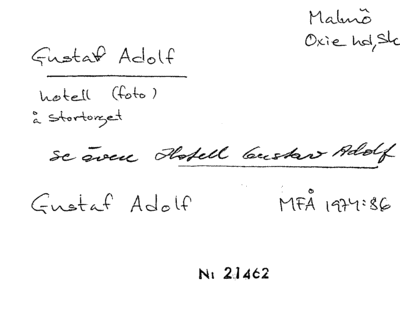 Malmö
Oxie hd, Sk
Gustaf Adolf
hotell (foto)
å Stortorget
se även Hotell Gustav Adolf
Gustaf Adolf MFÅ 1974:86
Ni 21462